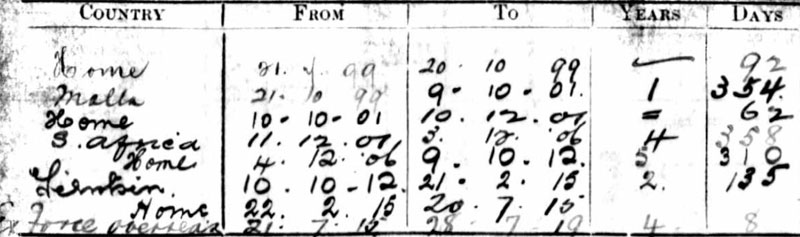 COUNTRY FROM TO YEARS DAYS
Home 21. 7. 99 20. 10 99 — 92
Malta 21. 10 99 9. 10. 01. 1 354.
Home 10. 10. 01 10. 12. 01 = 62
S. Africa 11. 12. 01 3. 12. 06 4 358
Home 4. 12. 06 9. 10. 12. 5 310
10. 10. 12. 21. 2. 15 2. 135
Home 22. 2. 15 20. 7. 15
Force overseas 21. 7. 15 28 7 19 4 8